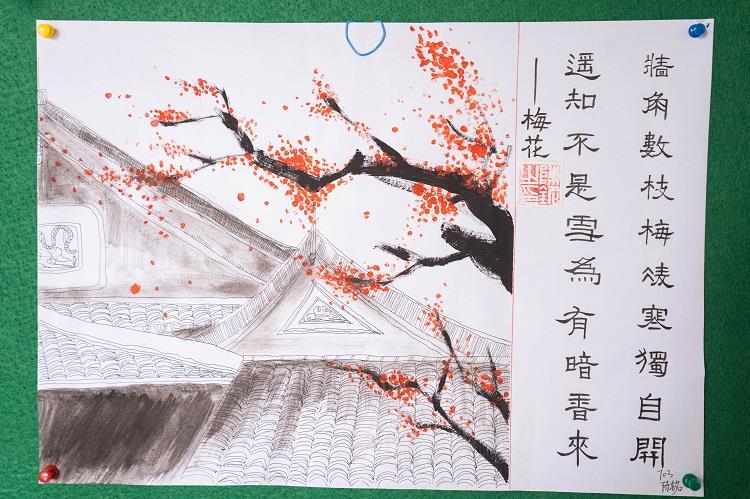 牆角數枝梅凌寒獨自開
遥知不是雪為有暗香來
——梅花
703